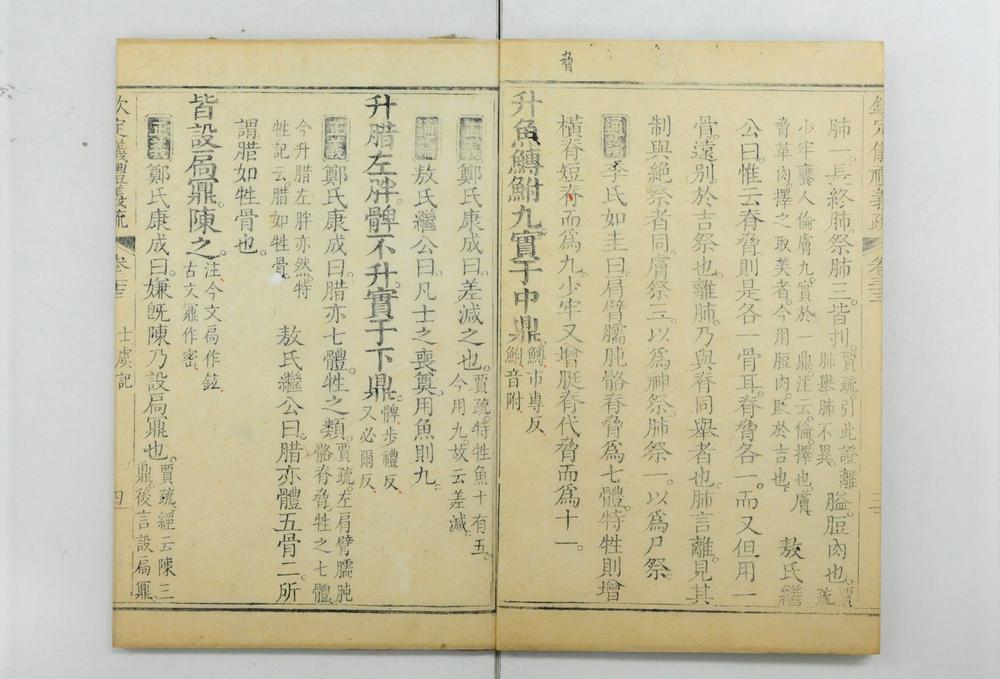 脅
欽定儀禮義疏 卷三十三 三
肺一長終肺祭肺三皆刌賈疏引此證離肺舉肺不異膉脰肉也賈疏
少牢雍人倫膚九實於一鼎注云倫擇也膚脅革肉擇之取美者今用脰肉貶於吉也敖氏繼
公曰惟云脊脅則是各一骨耳脊脅各一而又但用一
骨遠別於吉祭也離肺乃與脊同舉者也肺言離見其
制與絶祭者同膚祭三以爲神祭肺祭一以爲尸祭
通論李氏如圭曰肩臂臑肫骼脊脅爲七體特牲則增
橫脊短脅而爲九少牢又增脡脊代脅而爲十一
升魚鱄鮒九實于中鼎鱄市專反鮒音附
正義鄭氏康成曰差減之也賈疏特牲魚十有五今用九故云差減
通論敖氏繼公曰凡士之喪奠用魚則九
升腊左胖髀不升實于下鼎髀步禮反又必爾反
正義鄭氏康成曰腊亦七體牲之類賈疏左肩臂臑肫骼脊脅牲之七體
今升腊左胖亦然特牲記云腊如牲骨敖氏繼公曰腊亦體五骨二所
謂腊如牲骨也
皆設扃鼏陳之注今文扃作鉉古文鼏作密
正義鄭氏康成曰嫌旣陳乃設扃鼏也賈疏經云陳三鼎後言設扃鼏
欽定儀禮義疏 卷三十三 士虞記 四